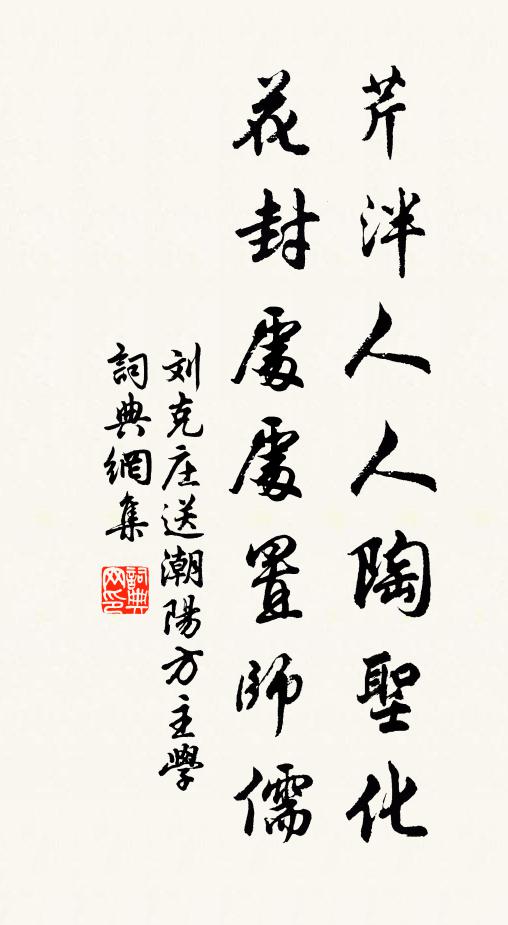 芹泮人人陶聖化
花封處處置師儒
刘克庄送潮陽方主學
詞典網集
詞典網印